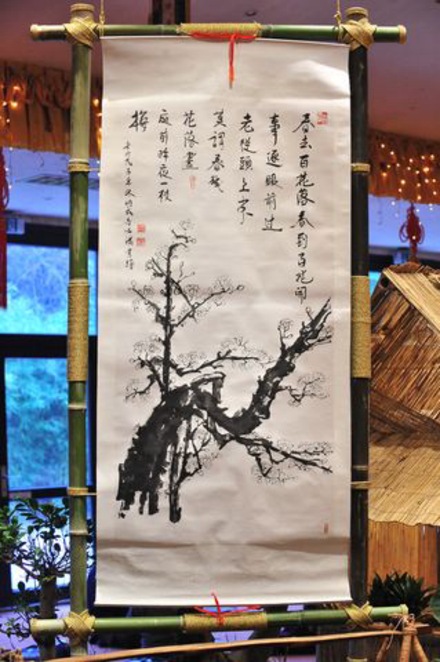 春去百花落春到百花開
事逐眼前过
老從頭上来
莫謂春残
花落盡
庭前昨夜一枝
梅